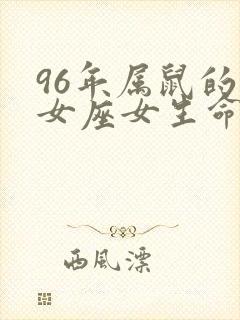 96年属鼠的
女座女生命
西風漂